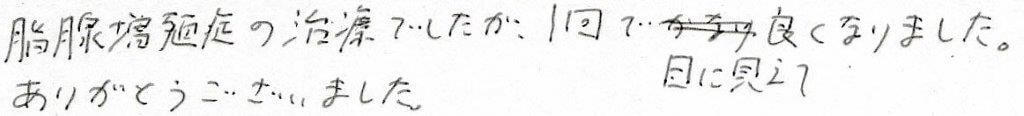 脂腺増殖症の治療でしたが、1回で目に見えて良くなりました。
ありがとうございました。